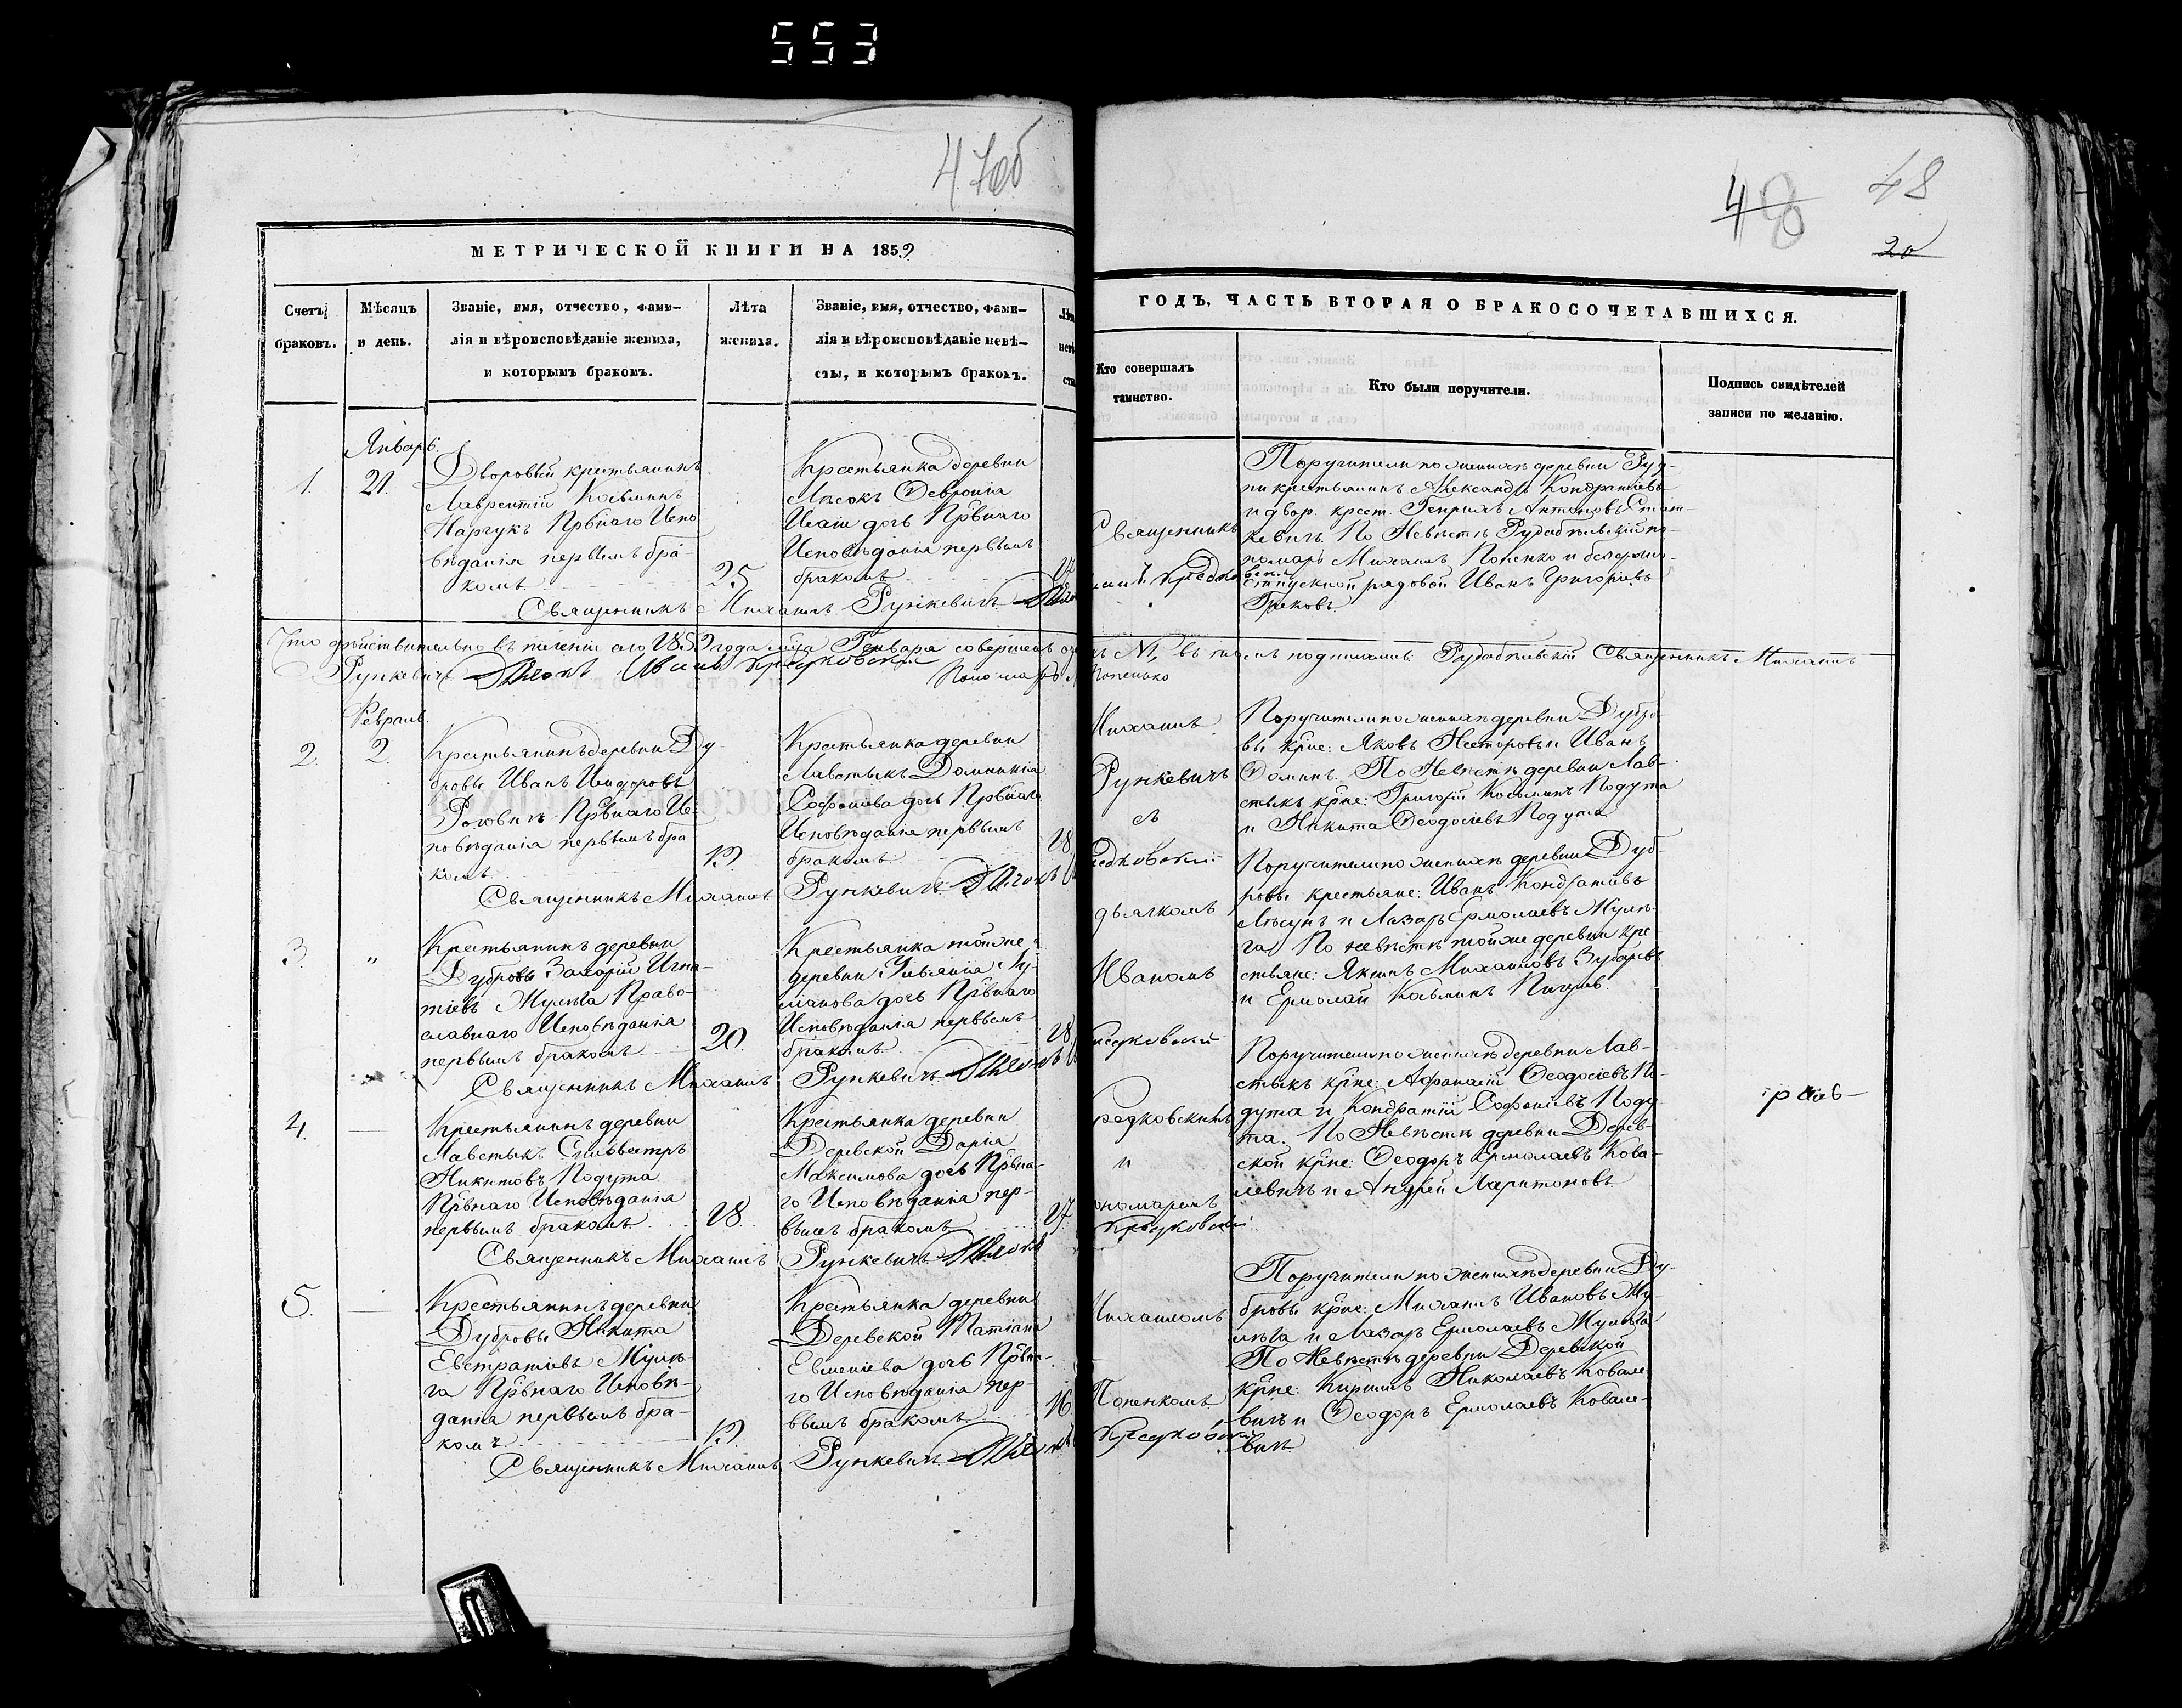 553
47об
48
48
20
МЕТРИЧЕСКОЙ КНИГИ НА 1859
ГОДЪ, ЧАСТЬ ВТОРАЯ О БРАКОСОЧЕТАВШИХСЯ.
Счетъ
браковъ.
Мѣсяцъ
и день.
Званіе, имя, отчество, фами-
лія и вѣроисповѣданіе жениха,
и которымъ бракомъ.
Лѣта
жениха.
Званіе, имя, отчество, фами-
лія и вѣроисповѣданіе невѣ-
сты, и которымъ бракомъ.
Лѣта
невѣ
сты
Кто совершалъ
таинство.
Кто были поручители.
Подпись свидѣтелей
записи по желанію.
1.
Январь.
21.
Дворовый крестьянинъ
Лаврентій Косьминъ
Нарчукъ Прв̃наго Испо
вѣданія первымъ бра-
комъ
25
Крестьянка деревни
Лѣсокъ Ѳевронія
Исаіи дочь Прв̃наго
Исповѣданія первымъ
бракомъ
17
Священникъ Михаилъ Рункевичъ
Священникъ
Поручители по женихѣ деревни Руд-
ни крестьянинъ Александръ Кондратіевъ
и двор. крест. Генрихъ Антоновъ
кевичъ. По Невѣстѣ Рудобѣльскій по-
номарь Михаилъ Попенко и безсрочно-
отпускной рядовой Иванъ Григорьевъ
Грековъ.
Что дѣйствительно въ теченіи сего 1859 года м̃ца Генваря совершенъ
№ 1, въ томъ подписали: Рудобѣльскій Священникъ Михаилъ
Рункевичъ Дьячокъ Иванъ Кречковскій Пономарь
Попенько
Февраль.
2.
2.
Крестьянинъ деревни Ду-
бровы Иванъ Исидоровъ
Роговичъ Прв̃наго Ис-
повѣданія первымъ бра
комъ
19.
Крестьянка деревни
Лавстыкъ Доминикія
Софоніева дочь Прв̃наго
Исповѣданія первымъ
бракомъ
18
Священникъ Михаилъ Рункевичъ Дьячокъ
Михаилъ
Рункевичъ
съ
Поручители по женихѣ деревни Дубро-
вы кр̃не: Яковъ Несторовъ и Иванъ
Ѳоминъ. По Невѣстѣ деревни Лав-
стыкъ кр̃не: Григорій Косьминъ Подута
и Никита Ѳеодосіевъ Подута
3.
"
Крестьянинъ деревни
Дубровы Захарій Игна-
тіевъ Мулѣга Право-
славнаго Исповѣданія
первымъ бракомъ
20.
Крестьянка тойже
деревни Ульянія Лу-
кіанова дочь Прв̃наго
Исповѣданія первымъ
бракомъ
18
Священникъ Михаилъ Рункевичъ Дьячокъ
дьячкомъ
Иваномъ
Поручители по женихѣ деревни Дуб-
ровы крестьяне: Иванъ Кондратіевъ
и Лазарь Ермолаевъ Мулѣ-
га. По невѣстѣ тойже деревни кре
стьяне: Якимъ Михаиловъ
и Ермолай Косьминъ
4.
Крестьянинъ деревни
Лавстыкъ Сильвестръ
Никитовъ Подута
Прв̃наго Исповѣданія
первымъ бракомъ
18.
Крестьянка деревни
Деревской Дарія
Максимова дочь Прв̃на-
го Исповѣданія пер-
вымъ бракомъ
17
Священникъ Михаилъ Рункевичъ Дьячокъ
и
Поручители по женихѣ деревни Лав-
стыкъ кр̃не: Аѳанасій Ѳеодосіевъ По-
дута и Кондратій Софоніевъ Поду-
та. По Невѣстѣ деревни Дерев-
ской кр̃не: Ѳеодоръ Ермолаевъ Кова-
левичъ и Андрей Харитоновъ
5.
Крестьянинъ деревни
Дубровы Никита
Евстратіевъ Мулѣ-
га Прв̃наго Исповѣ-
данія первымъ бра-
комъ
19.
Крестьянка деревни
Деревской Татіана
Евменіева дочь Прв̃на-
го Исповѣданія пер-
вымъ бракомъ
16
Священникъ Михаилъ Рункевичъ Дьячокъ
Михаиломъ
Попенкомъ
Поручители по женихѣ деревни Ду-
бровы кр̃не: Михаилъ Ивановъ Му-
лѣга и Лазарь Ермолаевъ Мулѣга
По Невѣстѣ деревни Деревской
кр̃не: Кириллъ Николаевъ Ковале-
вичъ и Ѳеодоръ Ермолаевъ Ковале-
вичъ